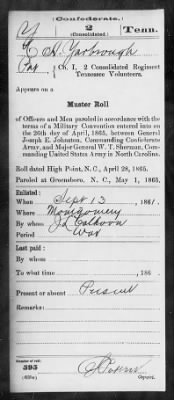 (Confederate.)
Y 2 Tenn.
(Consolidated)
E. A. Yarbrough
Pvt, Co. I, 2 Consolidated Regiment
Tennessee Volunteers.
Appears on a
Muster Roll
of Officers and Men paroled in accordance with the
terms of a Military Convention entered into on
the 26th day of April, 1865, between General
Joseph E. Johnston, Commanding Confederate
Army, and Major General W. T. Sherman, Com-
manding United States Army in North Carolina.
Roll dated High Point, N. C., April 28, 1865.
Paroled at Greensboro, N. C., May 1, 1865.
Enlisted:
When Sept 13, 1861.
Where Montgomery
By whom J L Calhoun
Period War
Last paid:
By whom
To what time , 186 .
Present or absent Present
Remarks:
Number of roll:
595
Copyist.